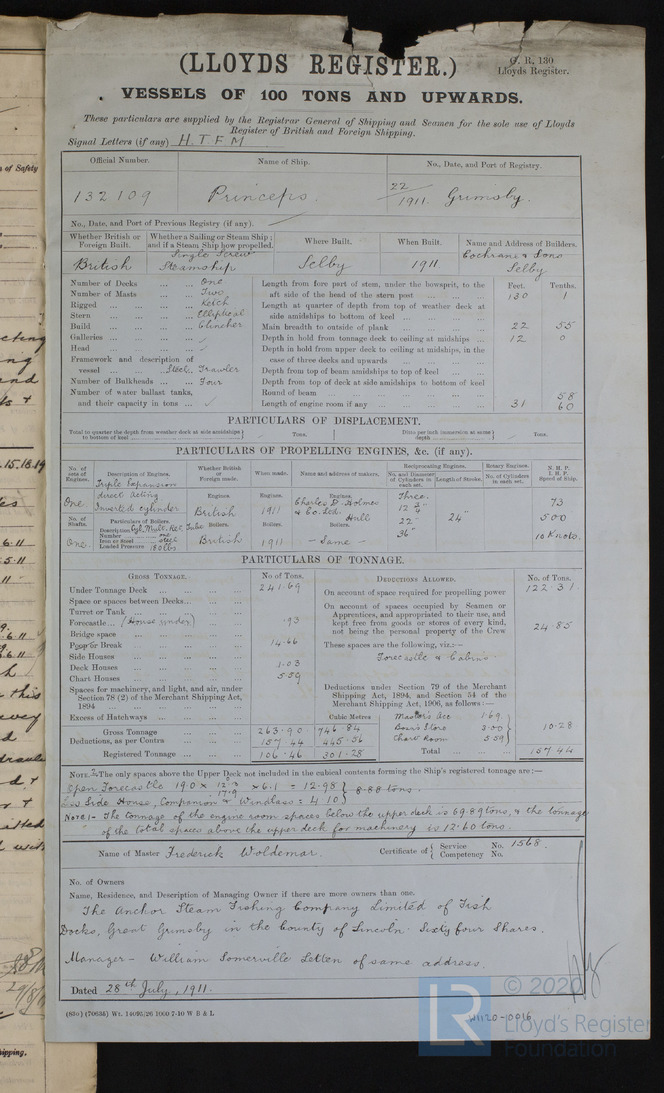 (LLOYDS REGISTER.)
G. R. 130
Lloyds Register.
VESSELS OF 100 TONS AND UPWARDS.
These particulars are supplied by the Registrar General of Shipping and Seamen for the sole use of Lloyds
Register of British and Foreign Shipping.
Signal Letters (if any) H.T.F.M
Official Number. Name of Ship. No., Date, and Port of Registry.
132109 Princeps. 22/1911 Grimsby.
No., Date, and Port of Previous Registry (if any).
Whether British or Foreign Built. Whether a Sailing or Steam Ship; and if a Steam Ship how propelled. Where Built. When Built. Name and Address of Builders.
British Single Screw Steamship Selby 1911. Cochrane & Sons Selby
Number of Decks One
Number of Masts Two
Rigged Ketch
Stern Elliptical
Build Clincher
Galleries
Head
Framework and description of
vessel Steel. Trawler
Number of Bulkheads Four
Number of water ballast tanks,
and their capacity in tons
Feet. Tenths.
Length from fore part of stem, under the bowsprit, to the
aft side of the head of the stern post 130 1
Length at quarter of depth from top of weather deck at
side amidships to bottom of keel
Main breadth to outside of plank 22 55
Depth in hold from tonnage deck to ceiling at midships 12 0
Depth in hold from upper deck to ceiling at midships, in the
case of three decks and upwards
Depth from top of beam amidships to top of keel
Depth from top of deck at side amidships to bottom of keel
Round of beam 58
Length of engine room if any 31 60
PARTICULARS OF DISPLACEMENT.
Total to quarter the depth from weather deck at side amidships to bottom of keel Tons. Ditto per inch immersion at same depth Tons.
PARTICULARS OF PROPELLING ENGINES, &c. (if any).
No. of sets of Engines. Description of Engines. Whether British or Foreign made. When made. Name and address of makers. Reciprocating Engines. No. and Diameter of Cylinders in each set. Length of Stroke. Rotary Engines. No. of Cylinders in each set. N.H.P. I.H.P. Speed of Ship.
One Triple Expansion direct acting Inverted cylinder Engines. British Engines. 1911 Engines. Charles D. Holmes & Co. Ltd. Hull Three. 12 3/4" 22" 36" 24" 73 500 10 Knots.
No. of Shafts. Particulars of Boilers. Boilers. Boilers. Boilers.
Description Cyl. Mult. Hel. Tube
Number one
Iron or Steel steel
Loaded Pressure 180lbs
One British 1911 - Same -
PARTICULARS OF TONNAGE.
GROSS TONNAGE. No. of Tons.
Under Tonnage Deck 241.69
Space or spaces between Decks
Turret or Tank
Forecastle (House under) .93
Bridge space
Poop or Break 14.66
Side Houses
Deck Houses 1.03
Chart Houses 5.59
Spaces for machinery, and light, and air, under
Section 78 (2) of the Merchant Shipping Act,
1894
Excess of Hatchways
Cubic Metres
Gross Tonnage 263.90 746.84
Deductions, as per Contra 157.44 445.56
Registered Tonnage 106.46 301.28
DEDUCTIONS ALLOWED. No. of Tons.
On account of space required for propelling power 122.31
On account of spaces occupied by Seamen or
Apprentices, and appropriated to their use, and
kept free from goods or stores of every kind,
not being the personal property of the Crew 24.85
These spaces are the following, viz.:—
Forecastle & Cabins.
Deductions under Section 79 of the Merchant
Shipping Act, 1894, and Section 54 of the
Merchant Shipping Act, 1906, as follows:—
Master's acc 1.69
Bosn's Store 3.00
Chart Room 5.59
10.28
Total 157.44
NOTE 1.—The only spaces above the Upper Deck not included in the cubical contents forming the Ship's registered tonnage are:—
Open Forecastle 19.0 × × 6.1 = 12.98
Less Side House, Companion & Windlass = 4.10 8.88 tons.
Note:- The tonnage of the engine room spaces below the upper deck is 69.89 tons, & the tonnage
of the total spaces above the upper deck for machinery is 13.60 tons.
Name of Master Frederick Woldemar. Certificate of Service No. 1568.
Competency No.
No. of Owners
Name, Residence, and Description of Managing Owner if there are more owners than one.
The Anchor Steam Fishing Company Limited of Fish
Docks, Great Grimsby in the County of Lincoln. Sixty four Shares.
Manager - William Somerville Letten of same address.
Dated 28th July, 1911.
(83c) (70638) Wt. 14095/26 1000 7-10 W B & L
W1120-0016
LR © 2020
Lloyd's Register
Foundation